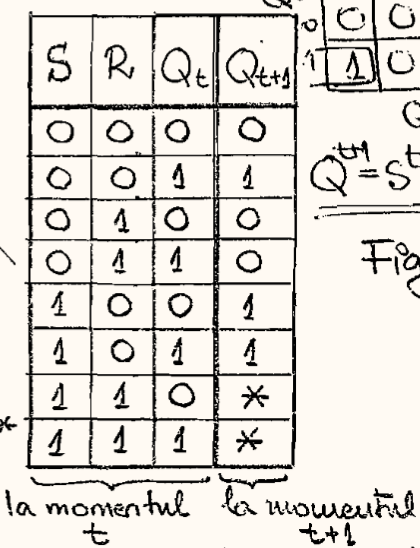 S R Qt Qt+1
0 0 0 0
0 0 1 1
0 1 0 0
0 1 1 0
1 0 0 1
1 0 1 1
1 1 0 *
1 1 1 *
la momentul t
la momentul t+1
0 0 0
1 1 0
Q^t+1=S^t
Fig